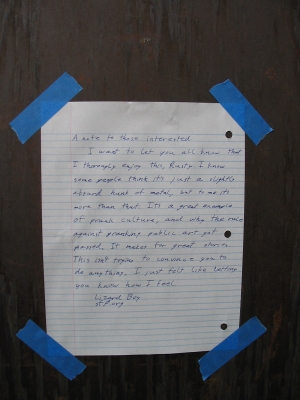 A note to those interested
I want to let you all know that
I thoroughly enjoy this, Rusty I know
some people think it's just a slightly
absurd hunk of metal, but to me it's
more than that. It's a great example
of prank culture, and why the rule
against pranking public art got
passed. It makes for great stories.
This isn't trying to convince you to
do anything. I just felt like letting
you know how I feel
Lizard Boy